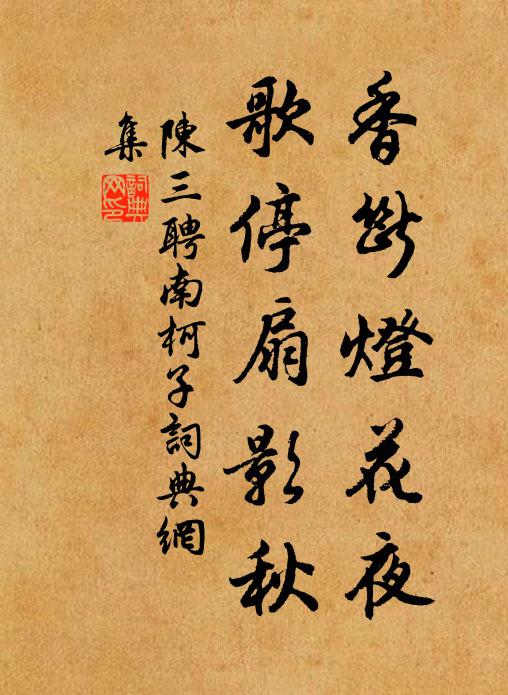 香斷燈花夜
歌停扇影秋
陳三聘南柯子詞典網
集
詞典
网印